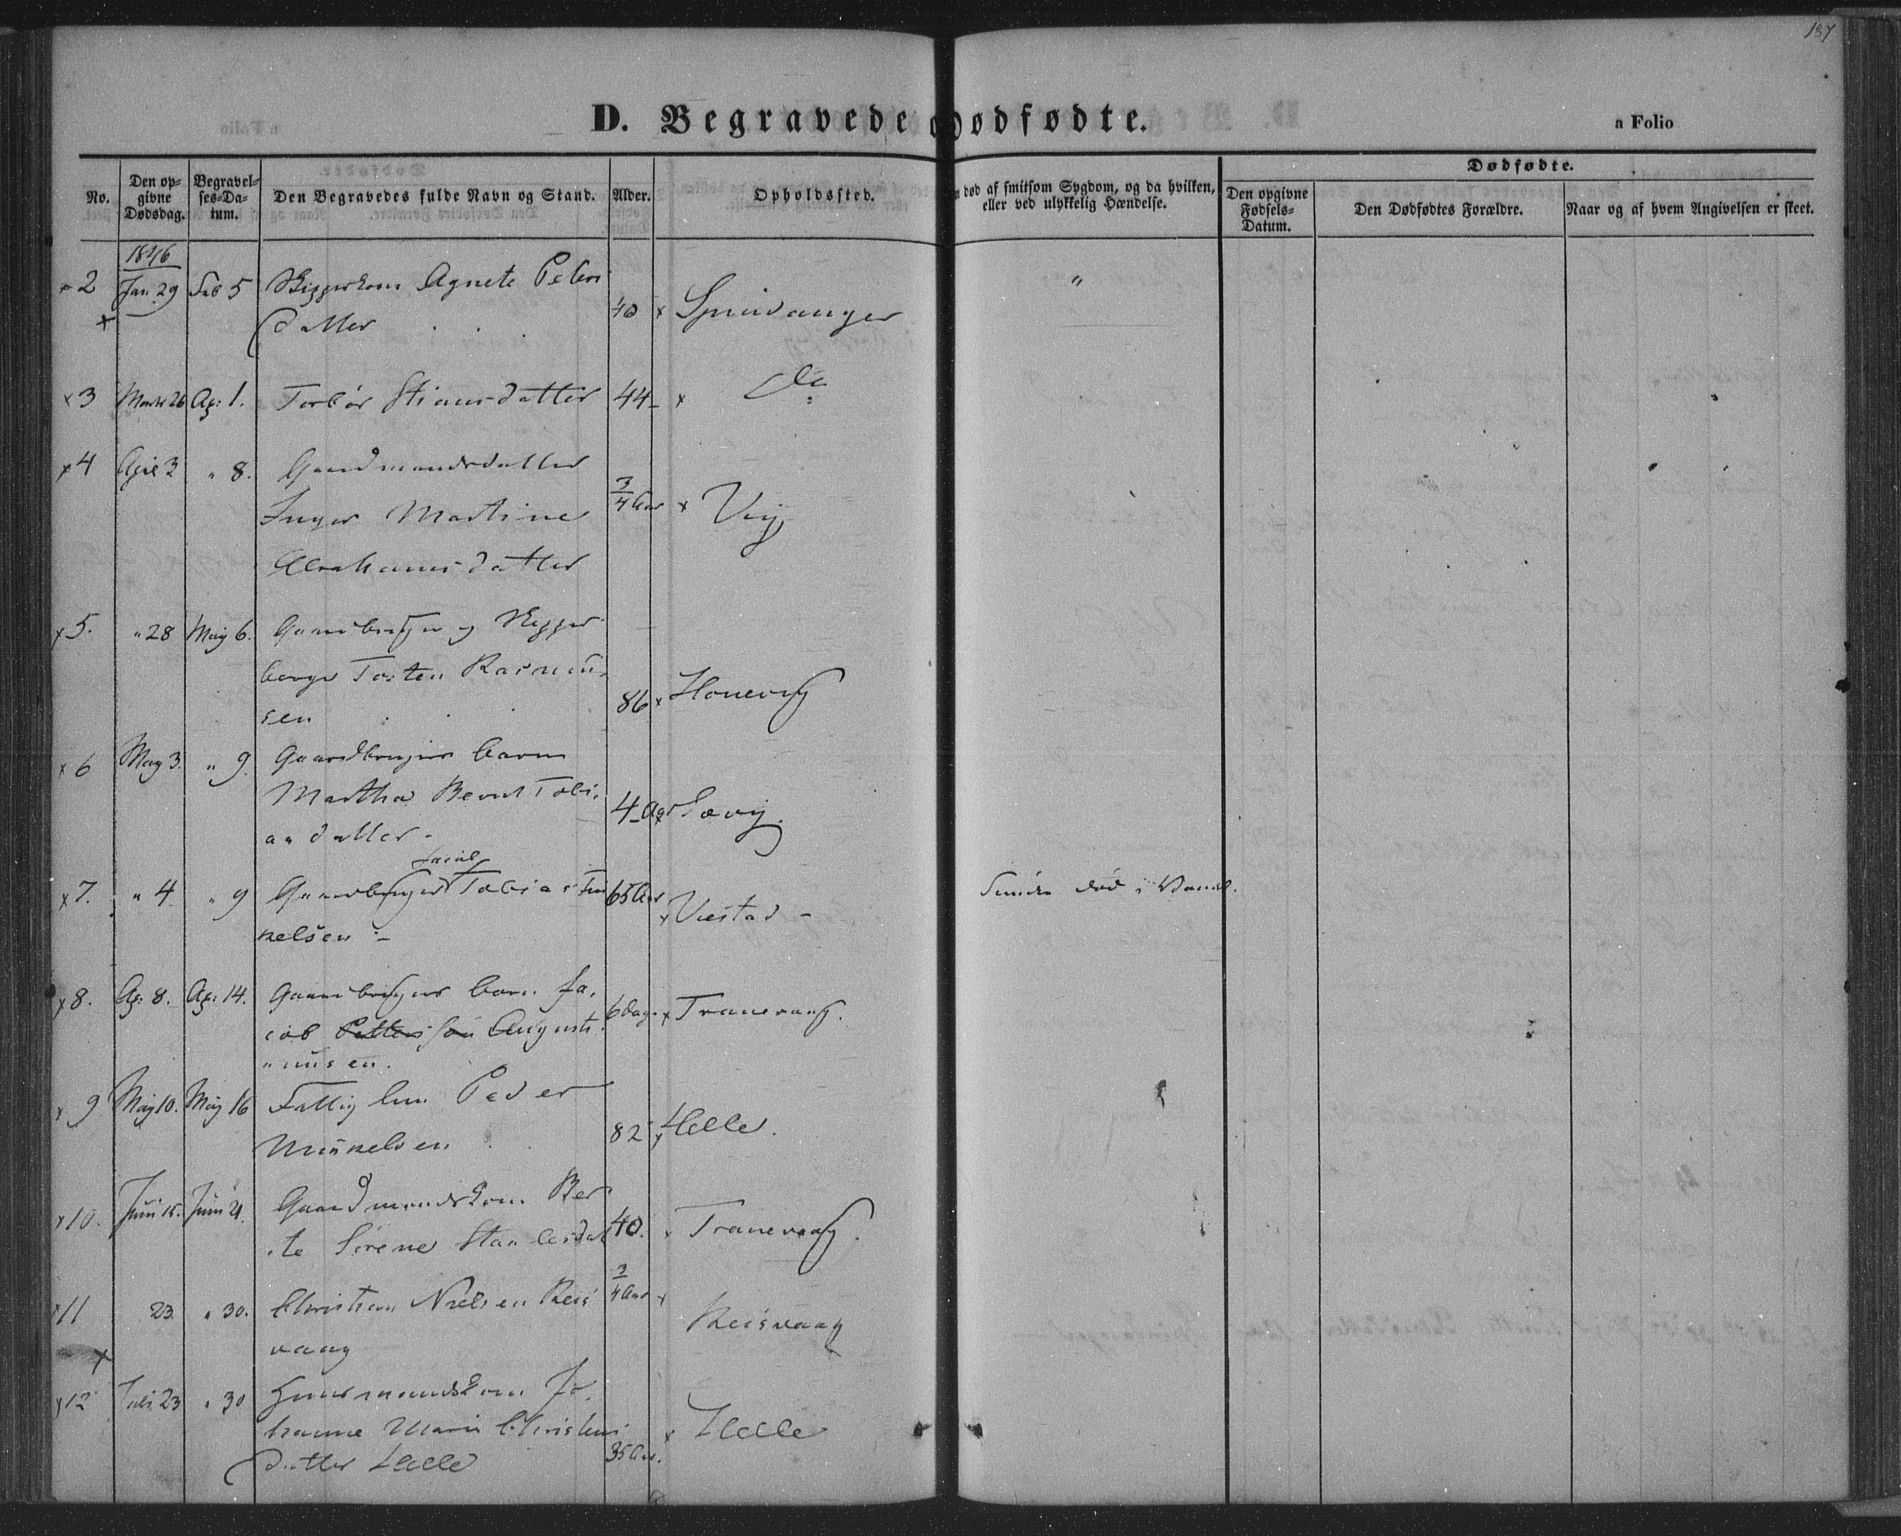 187
D. Begravede o Dødfødte.
a Folio
No.
Den op-
givne
Dødsdag.
Begravel-
ses-Da-
tum.
Den Begravedes fulde Navn og Stand.
Alder.
Opholdssted.
død af smitsom Sygdom, og da hvilken,
eller ved ulykkelig Hændelse.
Dødfødte.
Den opgivne
Fødsels-
Datum.
Den Dødfødtes Forældre.
Naar og af hvem Angivelsen er skeet.
1846
2 Jan 29 Feb 5 Agnete Peders
datter 40 "
3 Marts 26 Ap: 1. Torbør Stiansdatter 44 do
4 Apr 3 " 8. Gaardmandsdatter
Inger Martine 3/4 Aar Vig
Abrahamsdatter
5. " 28 May 6. Gaardbruger og Skipper
borger Tosten Rasmus-
sen 86 Honevig
6 May 3. " 9. Gaardbrugers barn
Martha Bernt Tobi-
as datter - 4 Aar Sævig.
Jacob
7. " 4 " 9 Gaardbruger Tobias 65 Aar Viestad - død i Vand.
kelsen -
8. Ap: 8. Ap: 14. Gaardbrugers barn Ja-
cob Augusti- 6 Dag. Tranevaag.
nusen.
9 May 10. May 16 Fattiglem Peder
Mikkelsen 82 Helle.
10. Juni 15. Juni 21. Gaardmandskone Ber-
te Sirene Staalesdat 40. Tranevaag.
11 23. " 30. Christian Nielsen Reis 3/4 Aar Reisvaag
vaag
12 Juli 23 " 30 Huusmandskone Jo-
hanne Marie Christens
datter Helle 35 Aar. Helle